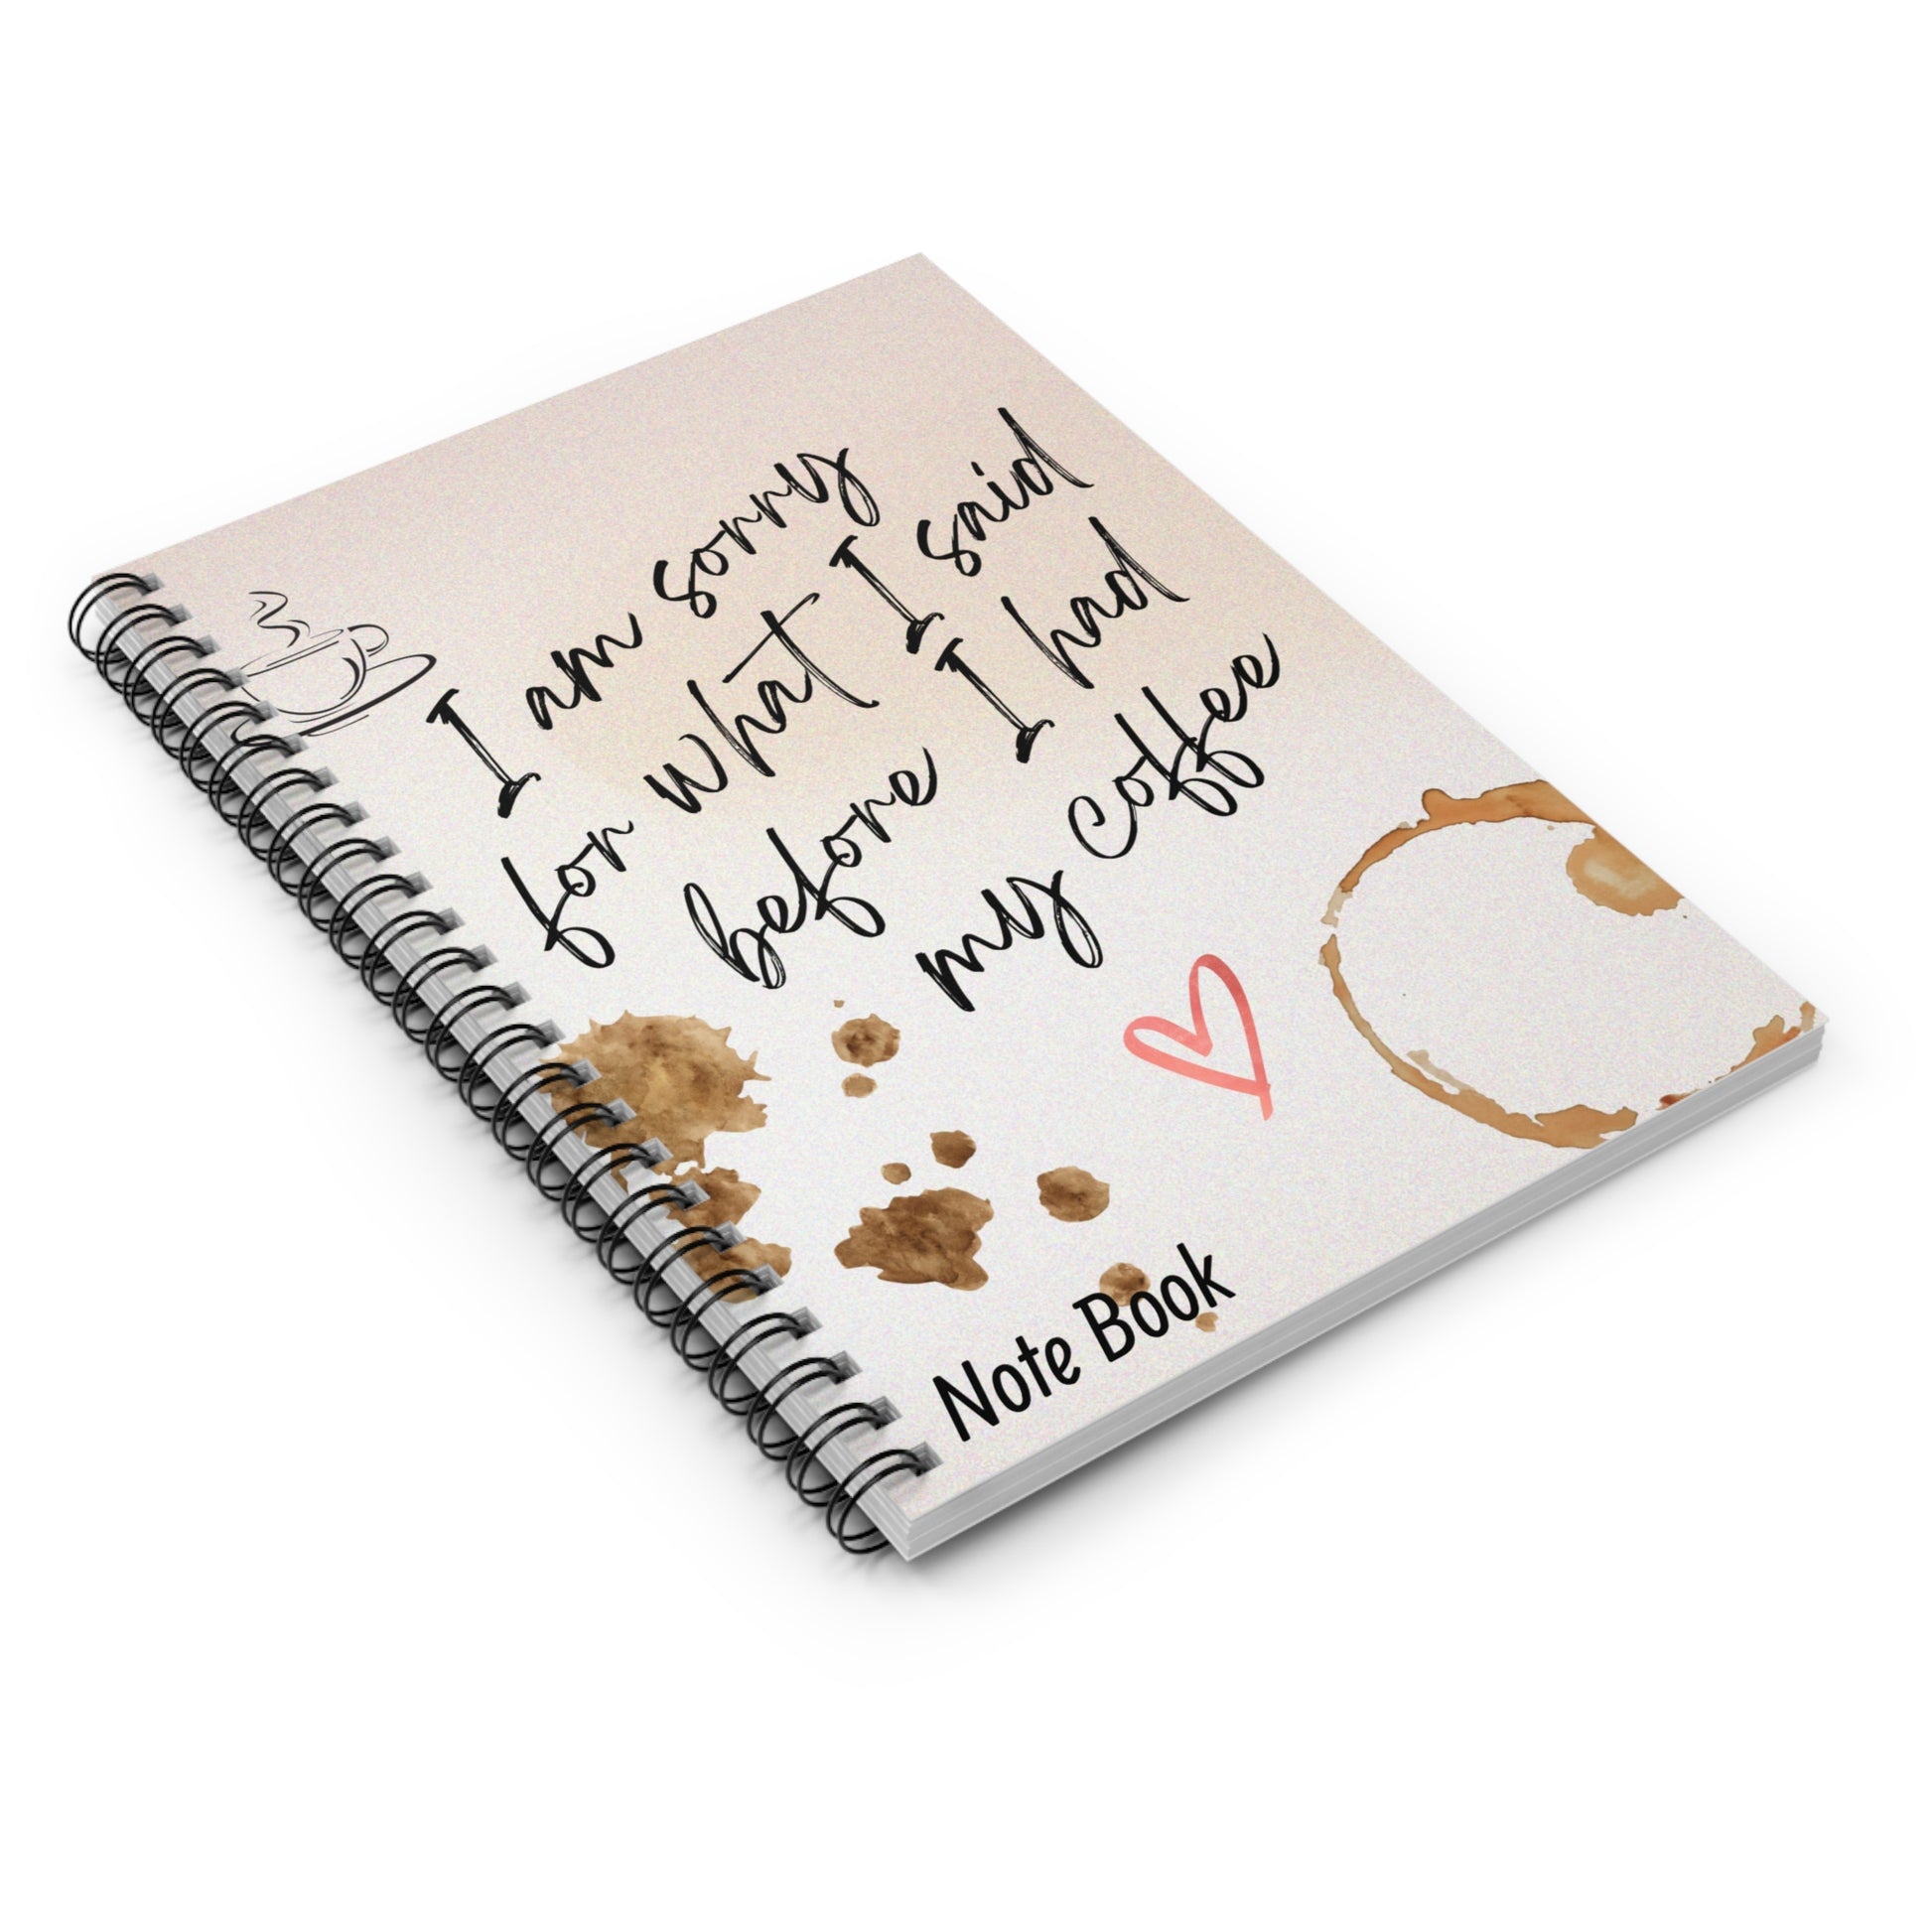 I am sorry
for what I said
before I had
my coffee
Note Book